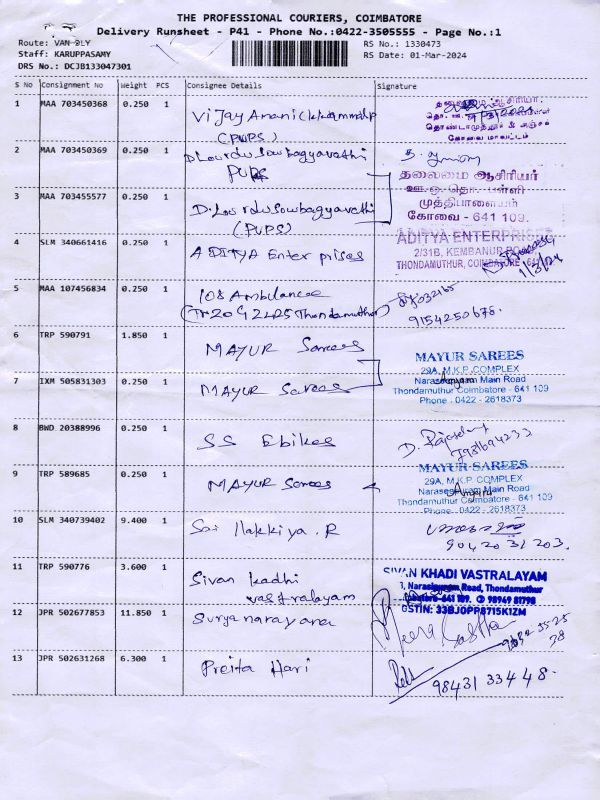 THE PROFESSIONAL COURIERS, COIMBATORE
Delivery Runsheet - P41 - Phone No.:0422-3505555 - Page No.:1
Route: VAN DLY
Staff: KARUPPASAMY
DRS No.: DCJB133047301
RS No.: 1330473
RS Date: 01-Mar-2024
S No Consignment No Weight PCS Consignee Details Signature
1 MAA 703450368 0.250 1
(PUPS)
தலைமை ஆசிரியர்
2 MAA 703450369 0.250 1 D Lourdu Sowbagyavathi
PUPS
தலைமை ஆசிரியர்
ஊ. ஒ. தொ. பள்ளி
முத்திபாளையம்
கோவை - 641 109.
3 MAA 703455577 0.250 1 D. Lourdu Sowbagyavathi
(PUPS)
4 SLM 340661416 0.250 1 ADITYA Enterprises
ADITYA ENTERPRISES
2/31B, KEMBANUR ROAD
THONDAMUTHUR, COIMBATORE - 641
1/3/24
5 MAA 107456834 0.250 1 108 Ambulance
(TN20G2425 Thondamuthur)
9154250678.
6 TRP 590791 1.850 1 MAYUR Sarees
MAYUR SAREES
29A, M.K.P. COMPLEX
Narasee Main Road
Thondamuthur Coimbatore - 641 109
Phone : 0422 - 2618373
7 IXM 505831303 0.250 1 MAYUR Sarees
8 BWD 20388996 0.250 1 SS Ebikes
9 TRP 589685 0.250 1 MAYUR Sarees
MAYUR SAREES
29A, M.K.P. COMPLEX
Main Road
Thondamuthur Coimbatore - 641 109
Phone : 0422 - 2618373
10 SLM 340739402 9.400 1 Sai Ilakkiya .R
9042031203.
11 TRP 590776 3.600 1 Sivan kadhi
vastralayam
SIVAN KHADI VASTRALAYAM
Narasipuram Road, Thondamuthur
641 109. 98949 81798
GSTIN: 33BJOPP8715K1ZM
12 JPR 502677853 11.850 1 Suryanarayana
13 JPR 502631268 6.300 1 Preita Hari
9843133448.